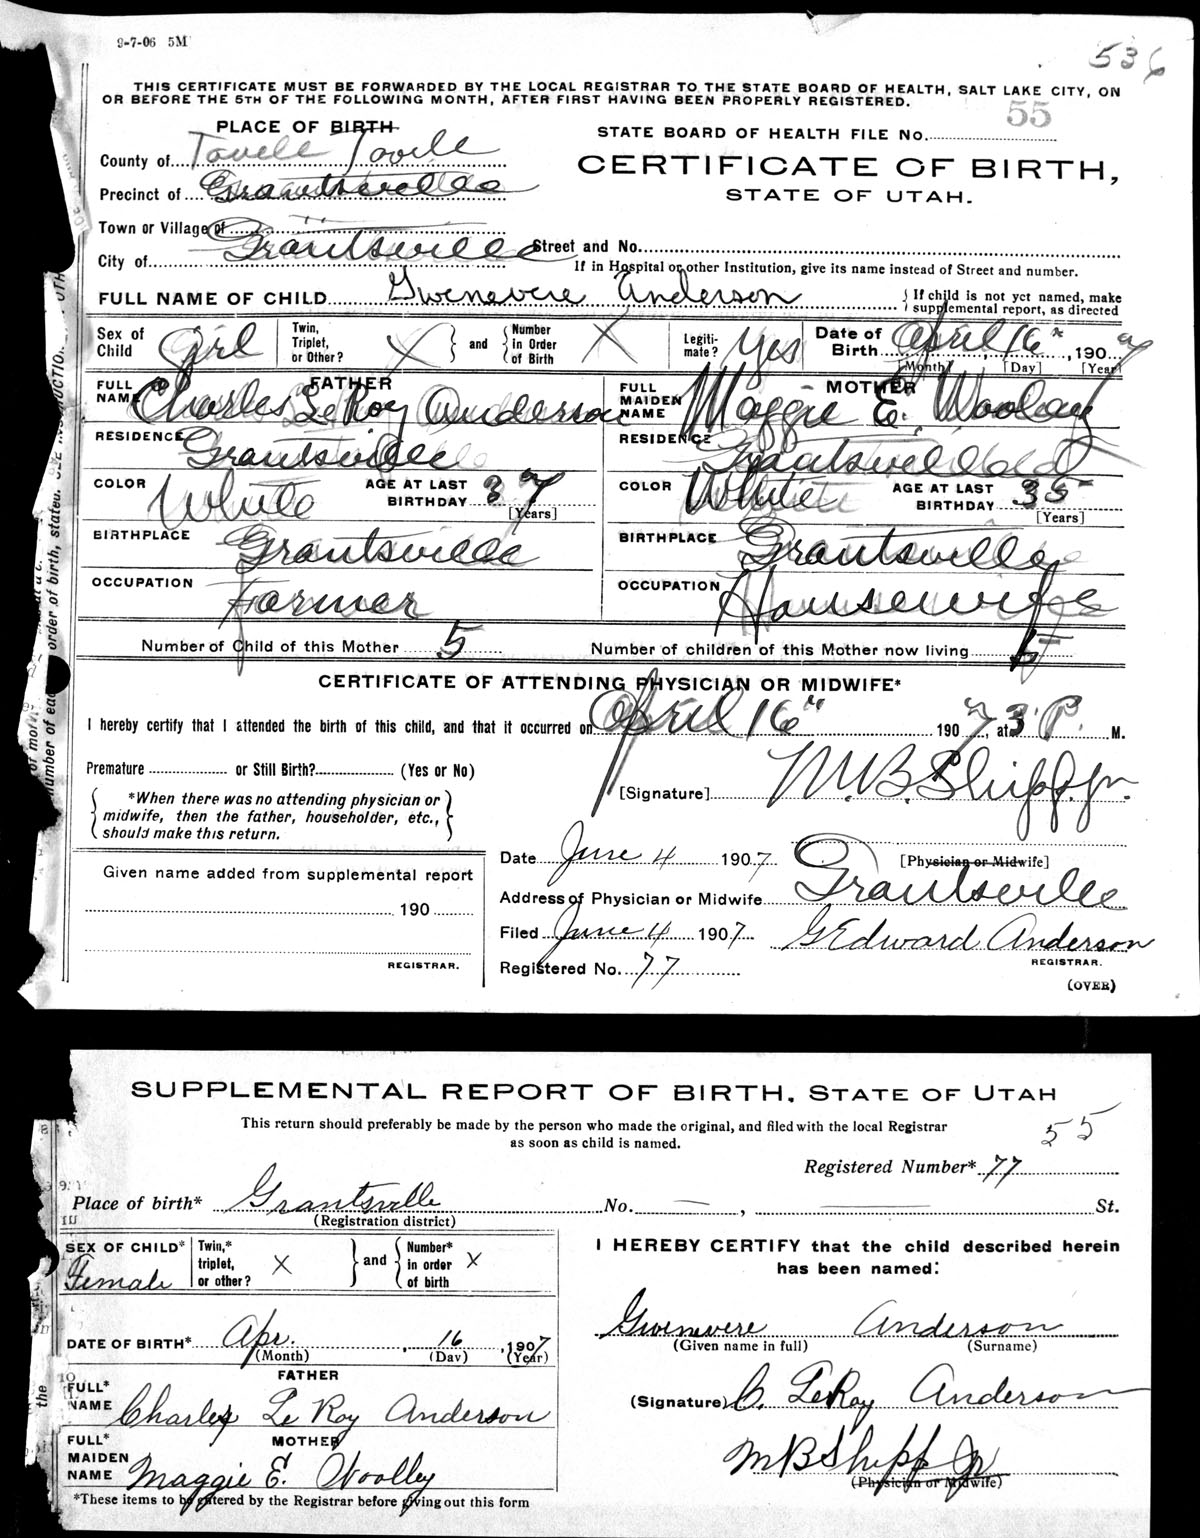 9-7-06 5M
536
THIS CERTIFICATE MUST BE FORWARDED BY THE LOCAL REGISTRAR TO THE STATE BOARD OF HEALTH, SALT LAKE CITY, ON
OR BEFORE THE 5TH OF THE FOLLOWING MONTH, AFTER FIRST HAVING BEEN PROPERLY REGISTERED.
55
PLACE OF BIRTH
STATE BOARD OF HEALTH FILE No.
County of Tooele Tooele
CERTIFICATE OF BIRTH,
Precinct of Grantsville
STATE OF UTAH.
Town or Village of
City of Grantsville Street and No.
If in Hospital or other Institution, give its name instead of Street and number.
FULL NAME OF CHILD Gwenevere Anderson { If child is not yet named, make supplemental report, as directed
Sex of Child Girl Twin, Triplet, or Other? X } and { Number in Order of Birth X Legiti- mate? Yes Date of Birth April 16", 1907
(Month) [Day] [Year]
FATHER MOTHER
FULL NAME Charles LeRoy Anderson FULL MAIDEN NAME Maggie E. Wooley
RESIDENCE Grantsville RESIDENCE Grantsville
COLOR White AGE AT LAST BIRTHDAY 37 [Years] COLOR White AGE AT LAST BIRTHDAY 35 [Years]
BIRTHPLACE Grantsville BIRTHPLACE Grantsville
OCCUPATION Farmer OCCUPATION Housewife
Number of Child of this Mother 5 Number of children of this Mother now living 5
CERTIFICATE OF ATTENDING PHYSICIAN OR MIDWIFE*
I hereby certify that I attended the birth of this child, and that it occurred on April 16" 1907, at 3 P. M.
Premature or Still Birth? (Yes or No)
[Signature] M.B. Shipp Jr.
{ *When there was no attending physician or midwife, then the father, householder, etc., should make this return. }
[Physician or Midwife]
Date June 4 1907
Given name added from supplemental report
Address of Physician or Midwife Grantsville
190
Filed June 4 1907 G Edward Anderson
REGISTRAR. REGISTRAR.
Registered No. 77
(OVER)
SUPPLEMENTAL REPORT OF BIRTH, STATE OF UTAH
This return should preferably be made by the person who made the original, and filed with the local Registrar
as soon as child is named.
55
Registered Number* 77
Place of birth* Grantsville No. — , — St.
(Registration district)
SEX OF CHILD* Female Twin,* triplet, or other? X } and { Number* in order of birth X
I HEREBY CERTIFY that the child described herein
has been named:
Gwenevere Anderson
(Given name in full) (Surname)
DATE OF BIRTH* Apr. 16, 1907
(Month) (Day) (Year)
FATHER
FULL* NAME Charles Le Roy Anderson
(Signature) C. LeRoy Anderson
MOTHER
FULL* MAIDEN NAME Maggie E. Woolley
M B Shipp Jr
(Physician or Midwife)
*These items to be entered by the Registrar before giving out this form